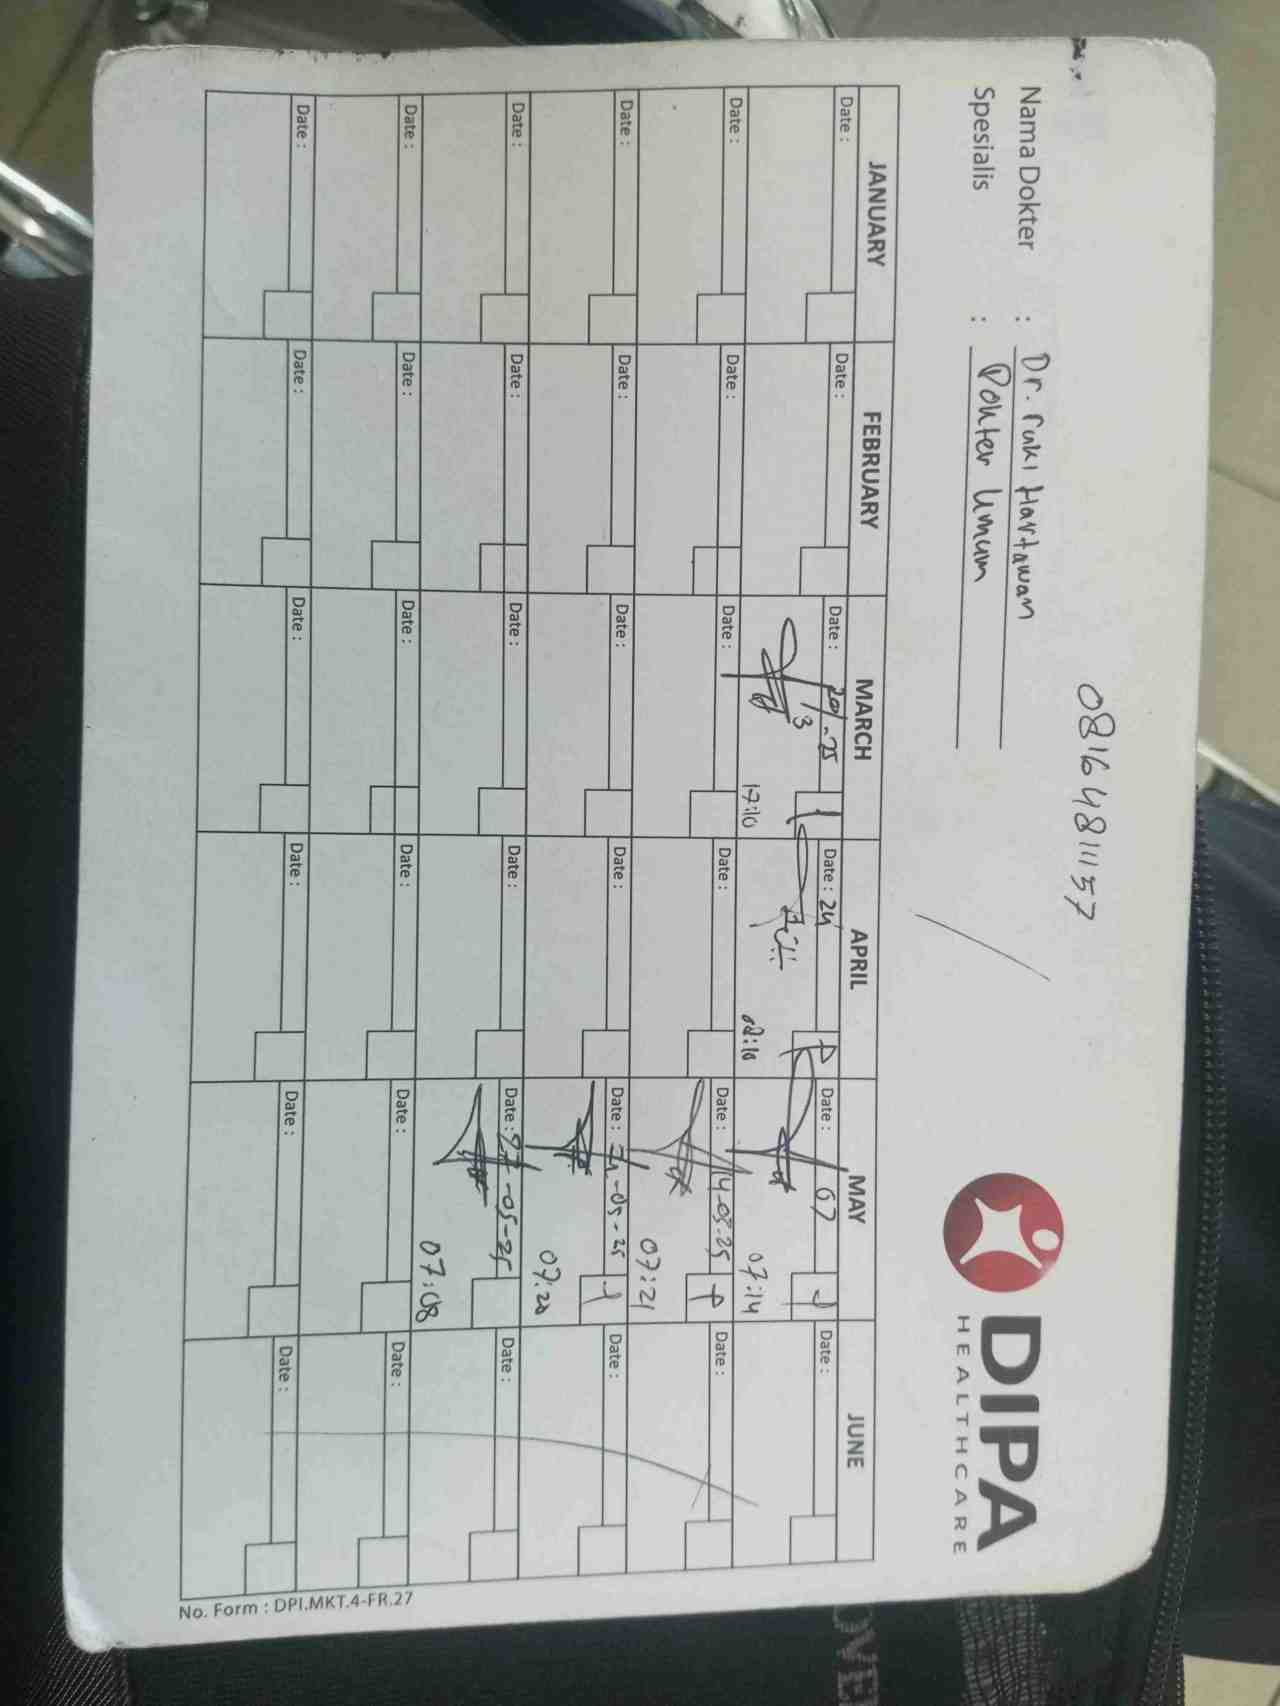 08164811157
DIPA
HEALTHCARE
Nama Dokter : Dr. ruki Hartawan
Spesialis : Dokter Umum
JANUARY FEBRUARY MARCH APRIL MAY JUNE
Date : Date : Date : 20/3-25 Date : 24 Date : 07 Date :
17:10 08:10 07:14
Date : Date : Date : Date : Date : 14-05-25 Date :
07:21
Date : Date : Date : Date : Date : 21-05-25 Date :
07:20
Date : Date : Date : Date : Date : 27-05-25 Date :
07:08
Date : Date : Date : Date : Date : Date :
Date : Date : Date : Date : Date : Date :
No. Form : DPI.MKT.4-FR.27